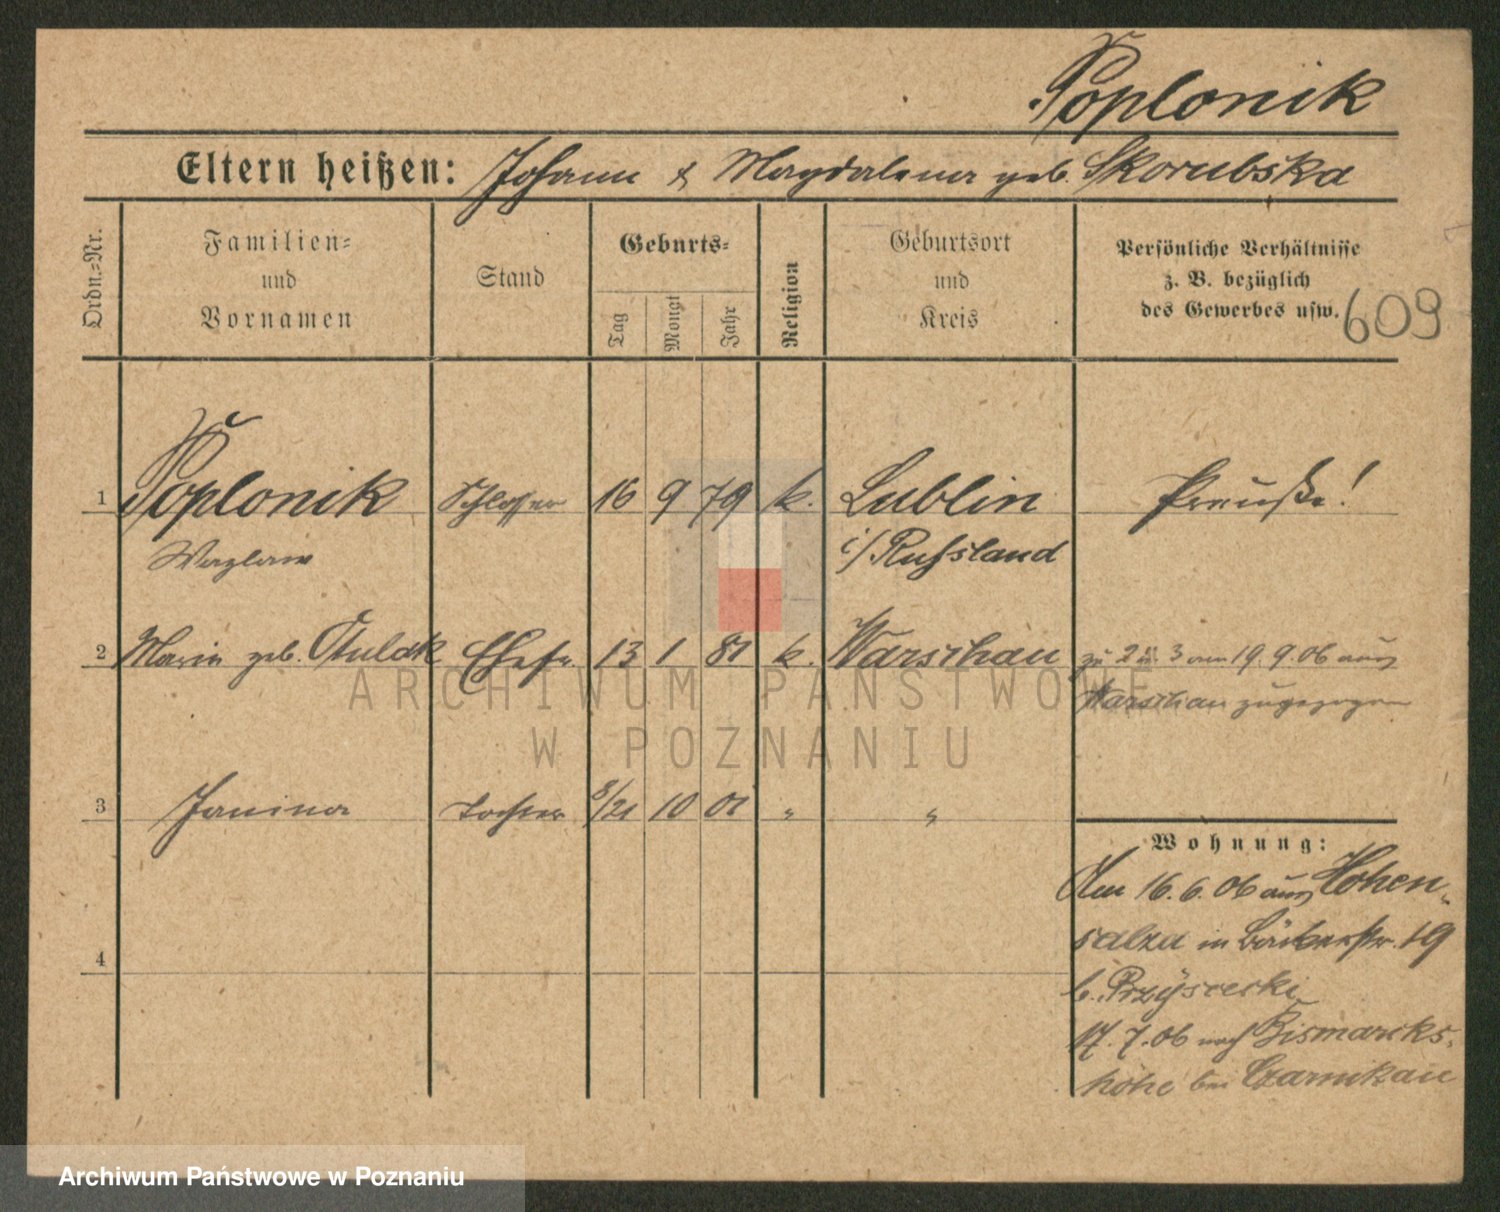 Poplonik
Eltern heißen: Johann & Magdalena geb. Skorubska
Ordn.-Nr.
Familien-
und
Vornamen
Stand
Geburts-
Tag
Monat
Jahr
Religion
Geburtsort
und
Kreis
Persönliche Verhältnisse
z. B. bezüglich
des Gewerbes usw.
609
1 Poplonik Schlosser 16 9 79 k. Lublin Preuße!
Wazlaw i/ Russland
2 Maria geb. Stulak Ehefr. 13 1 81 k. Warschau zu 2 u. 3 am 19.9.06 aus
Warschau zugezogen
3 Janina Tochter 8/21 10 01 " "
Wohnung:
Am 16.6.06 aus Hohen-
salza in Bäckerstr. 19
b. Przysiecki
17.7.06 nach Bismarcks-
höhe bei Czarnikau
4
ARCHIWUM PAŃSTWOWE
W POZNANIU
Archiwum Państwowe w Poznaniu